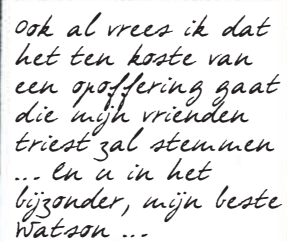 Ook al vrees ik dat
het ten koste van
een opoffering gaat
die mijn vrienden
triest zal stemmen
... En u in het
bijzonder, mijn beste
Watson ...